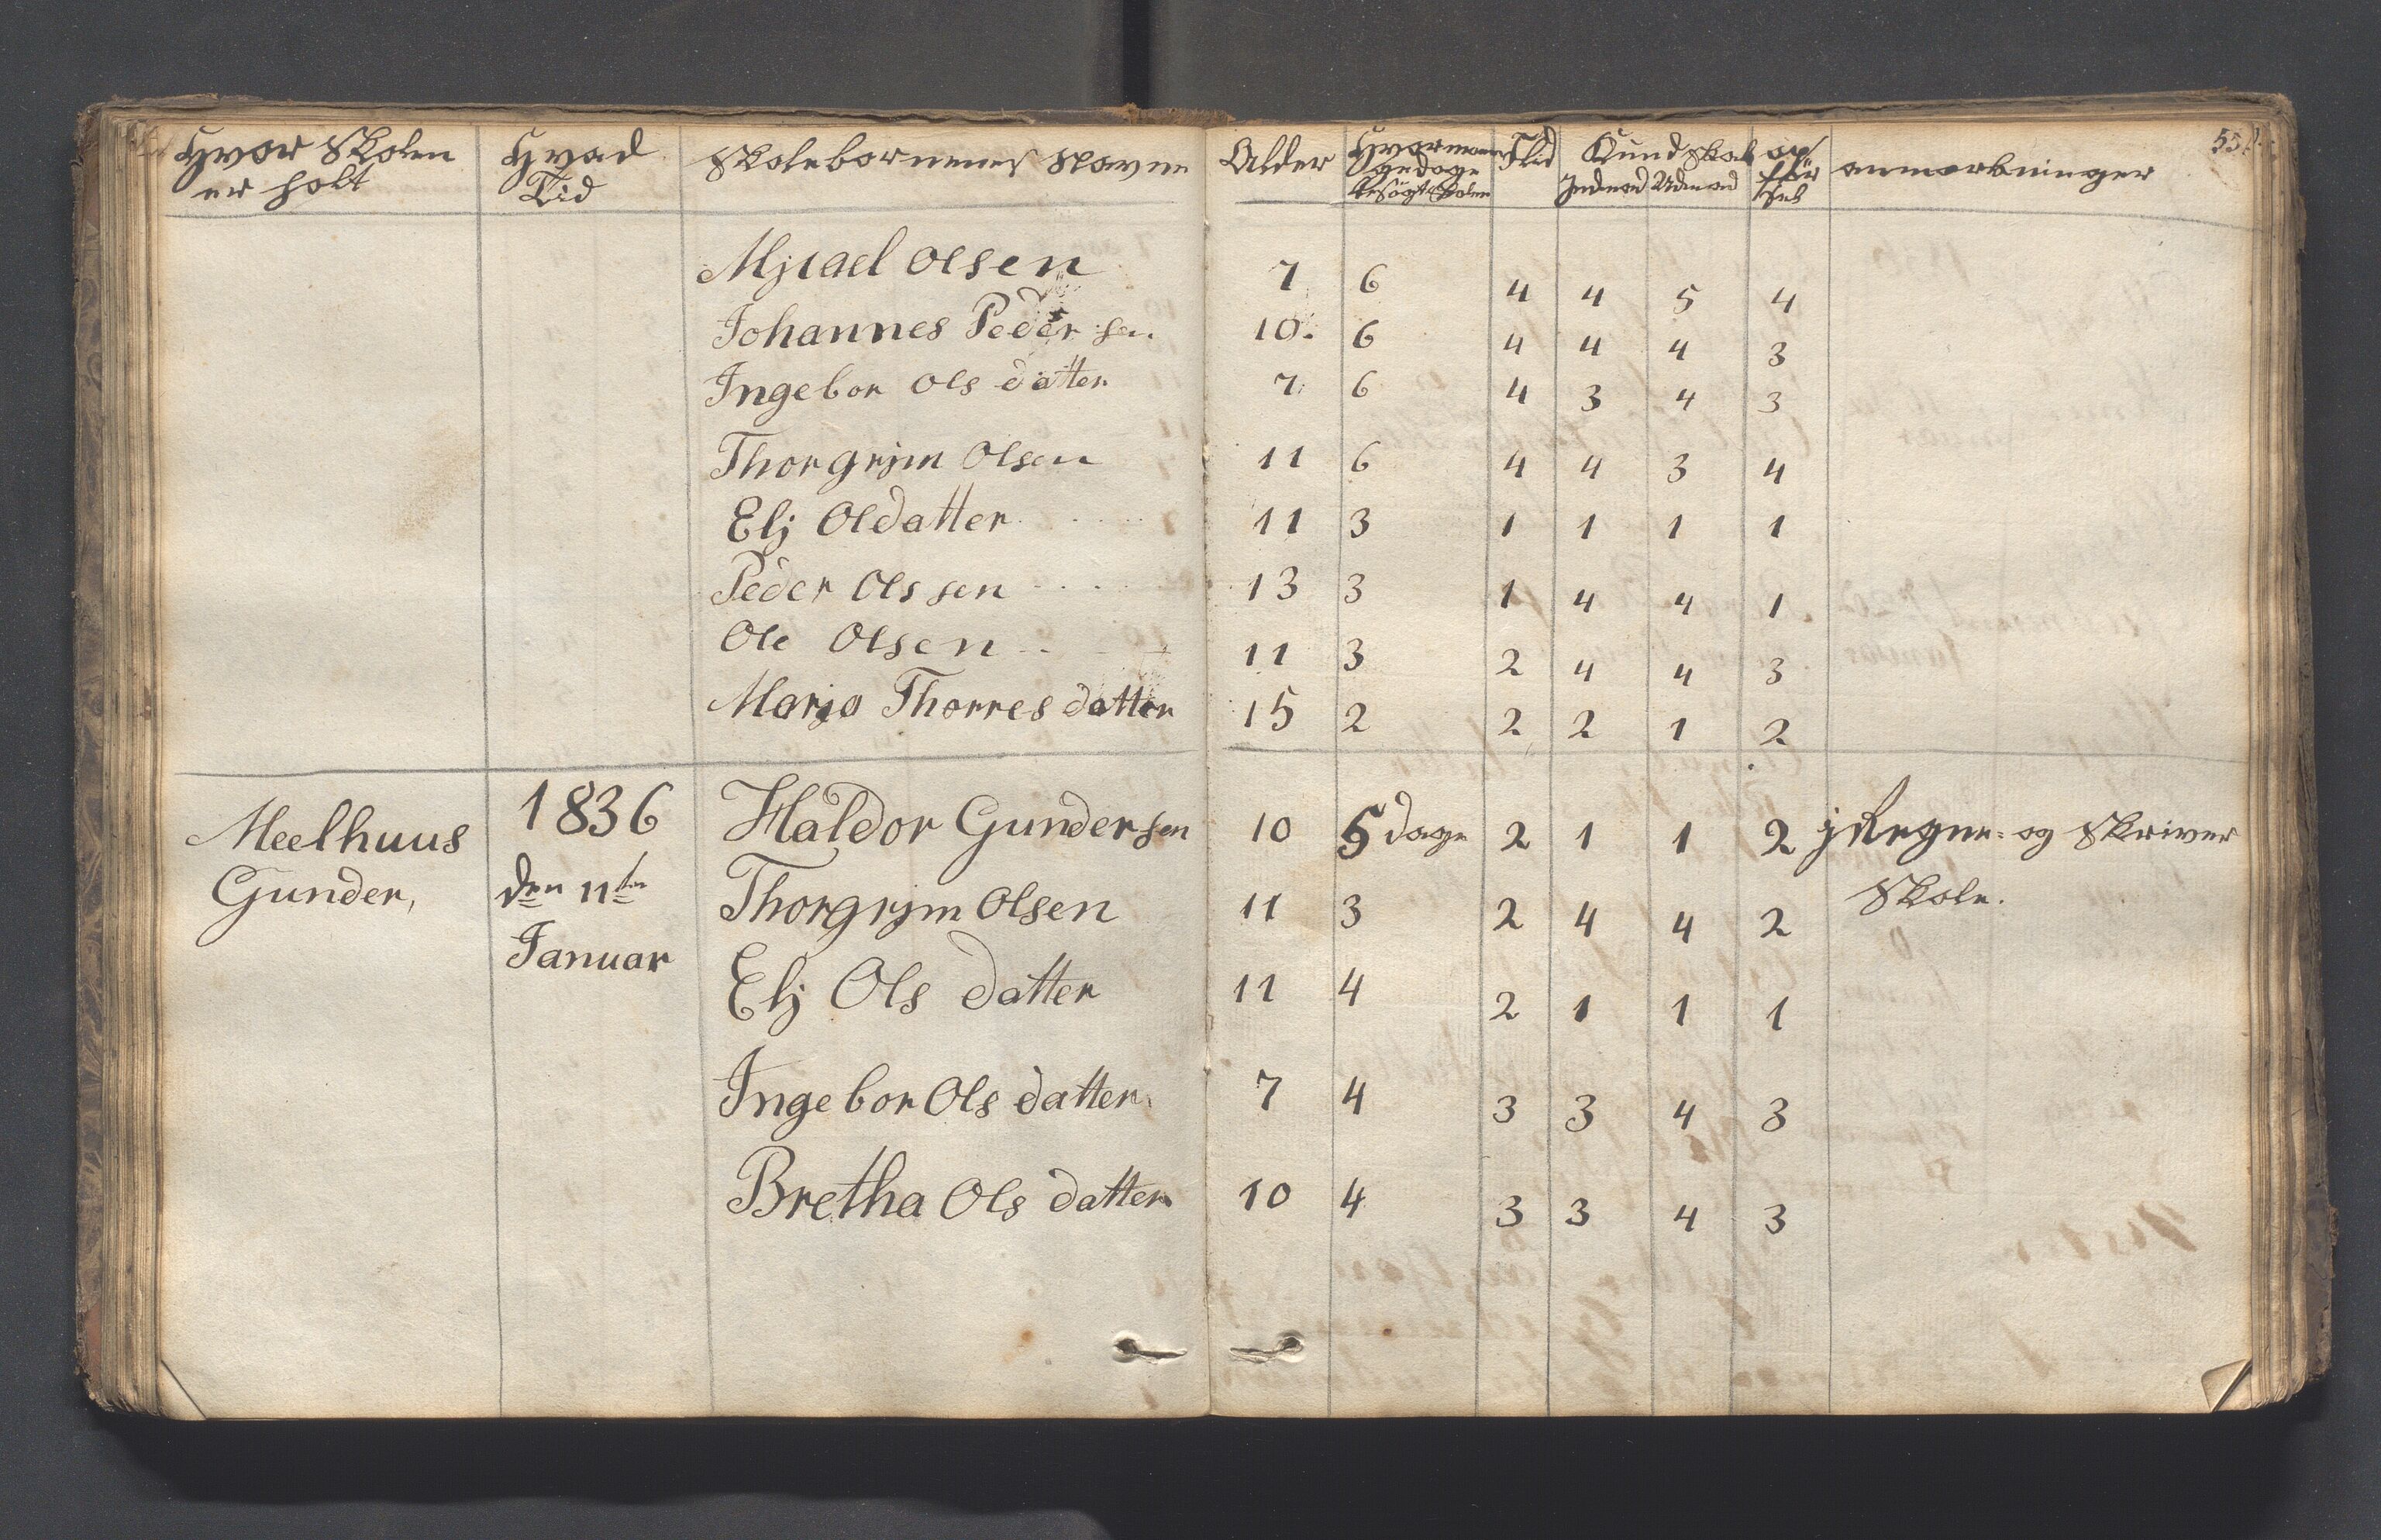 Hvor Skolen er holt | Hvad Tid | Skolebornenes Navne | Alder | Hvormange dage besögt Skolen | Flid | Kundskab Indvad Udvad | opförsel | anmerkninger
Mjkael Olsen 7 6 4 4 5 4
Johannes Peder sen 10. 6 4 4 4 3
Ingebor Ols datter 7 6 4 3 4 3
Thorgrjm Olsen 11 6 4 4 3 4
Elj Oldatter 11 3 1 1 1 1
Peder Olssen 13 3 1 4 4 1
Ole Olsen 11 3 2 4 4 3
Marja Thorres datter 15 2 2 2 1 2
Meelhuus 1836 Haldor Gundersen 10 5 dage 2 1 1 2 j Regne- og Skriver
Gunder, den 11te Thorgrjm Olsen 11 3 2 4 4 2 Skole.
Januar Elj Ols datter 11 4 2 1 1 1
Ingebor Ols datter 7 4 3 3 4 3
Bretha Ols datter 10 4 3 3 4 3